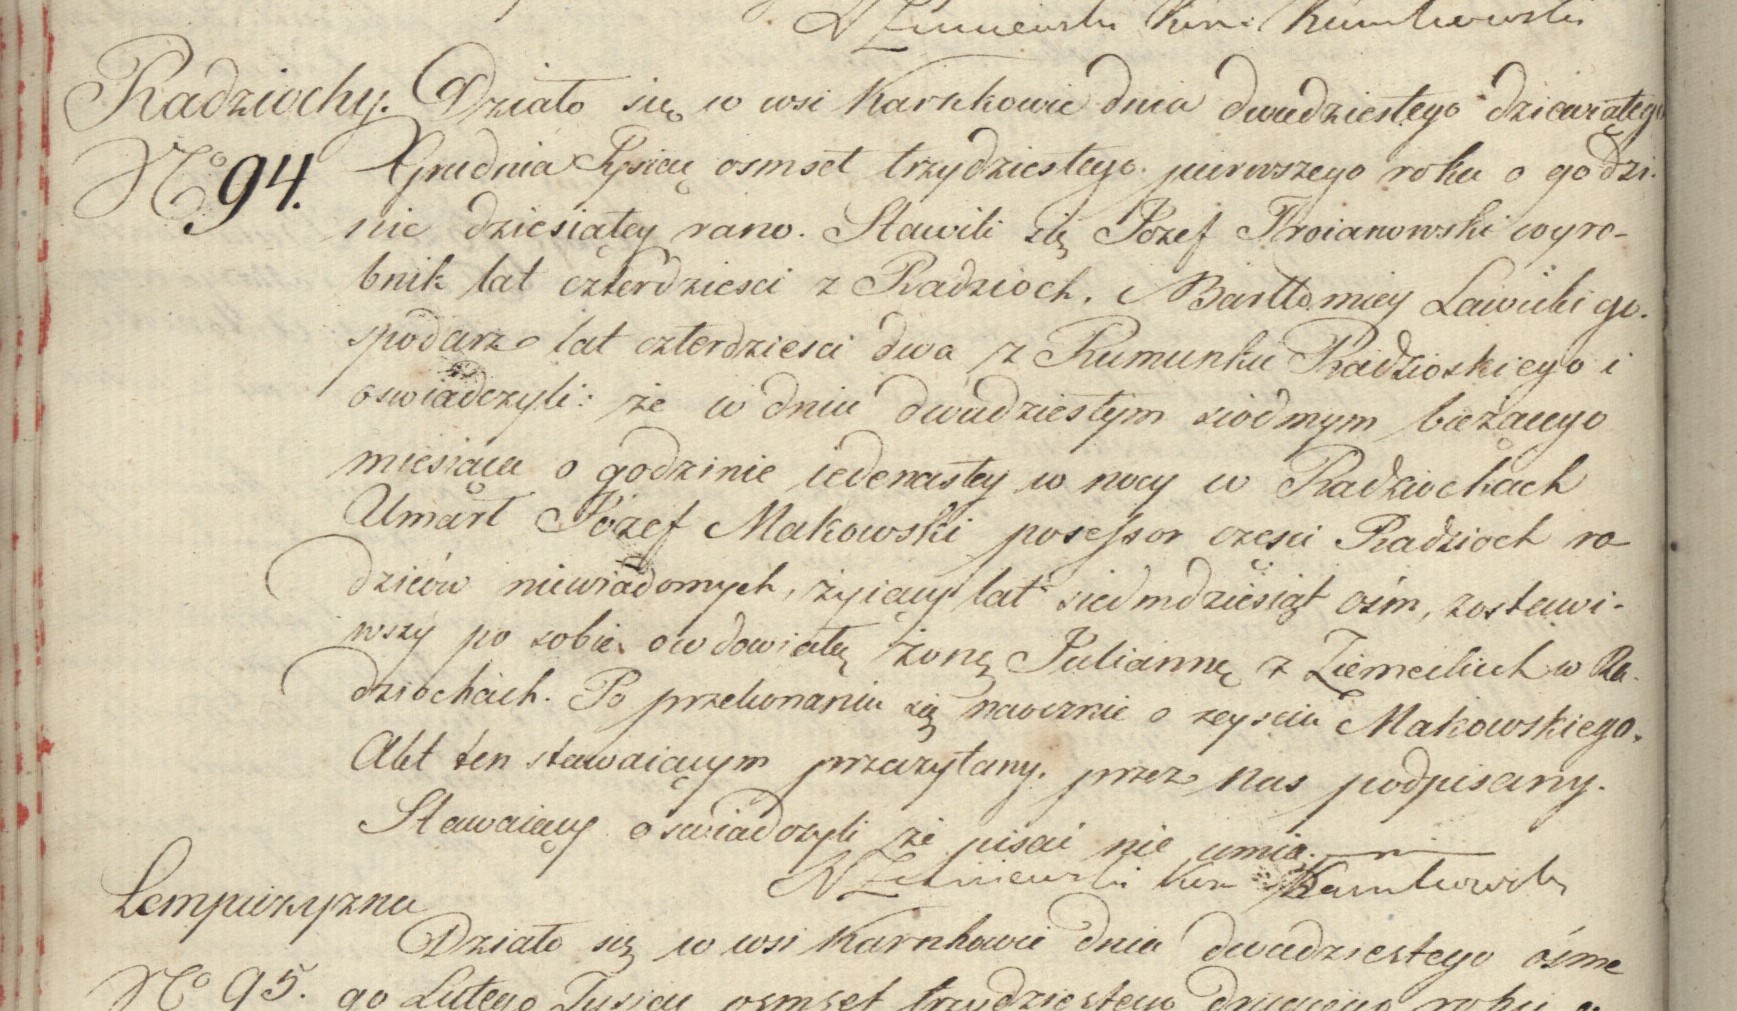 Kar: Karnkowski
Radziochy. Działo się w wsi Karnkowie dnia dwudziestego dziewiątego
No 94. Grudnia Tysiąc osmset trzydziestego pierwszego roku o godzi-
nie dziesiątey rano. Stawili się Jozef Troianowski wyro-
bnik lat czterdziesci z Radzioch. Bartłomiey Lawicki go-
spodarz lat czterdziesci dwa z Rumunku Radzioskiego i
oswiadczyli: że w dniu dwudziestym siodmym bieżącego
miesiąca o godzinie iedenastey w nocy w Radziochach
Umarł Józef Makowski posessor częsci Radzioch ro-
dziców niewiadomych, żyiący lat siedmdziesiąt ośm, zostawi-
wszy po sobie owdowiałą żonę Juliannę z Ziemeckich w Ra-
dziochach. Po przekonaniu się naocznie o zeysciu Makowskiego.
Akt ten stawaiącym przeczytany. przez nas podpisany.
Stawaiący oswiadczyli że pisać nie umią.
Karnkowski
Lempiczyzna
Działo się w wsi Karnkowie dnia dwudziestego ósme
No 95. go Lutego Tysiąc osmset trzydziestego drugiego roku o